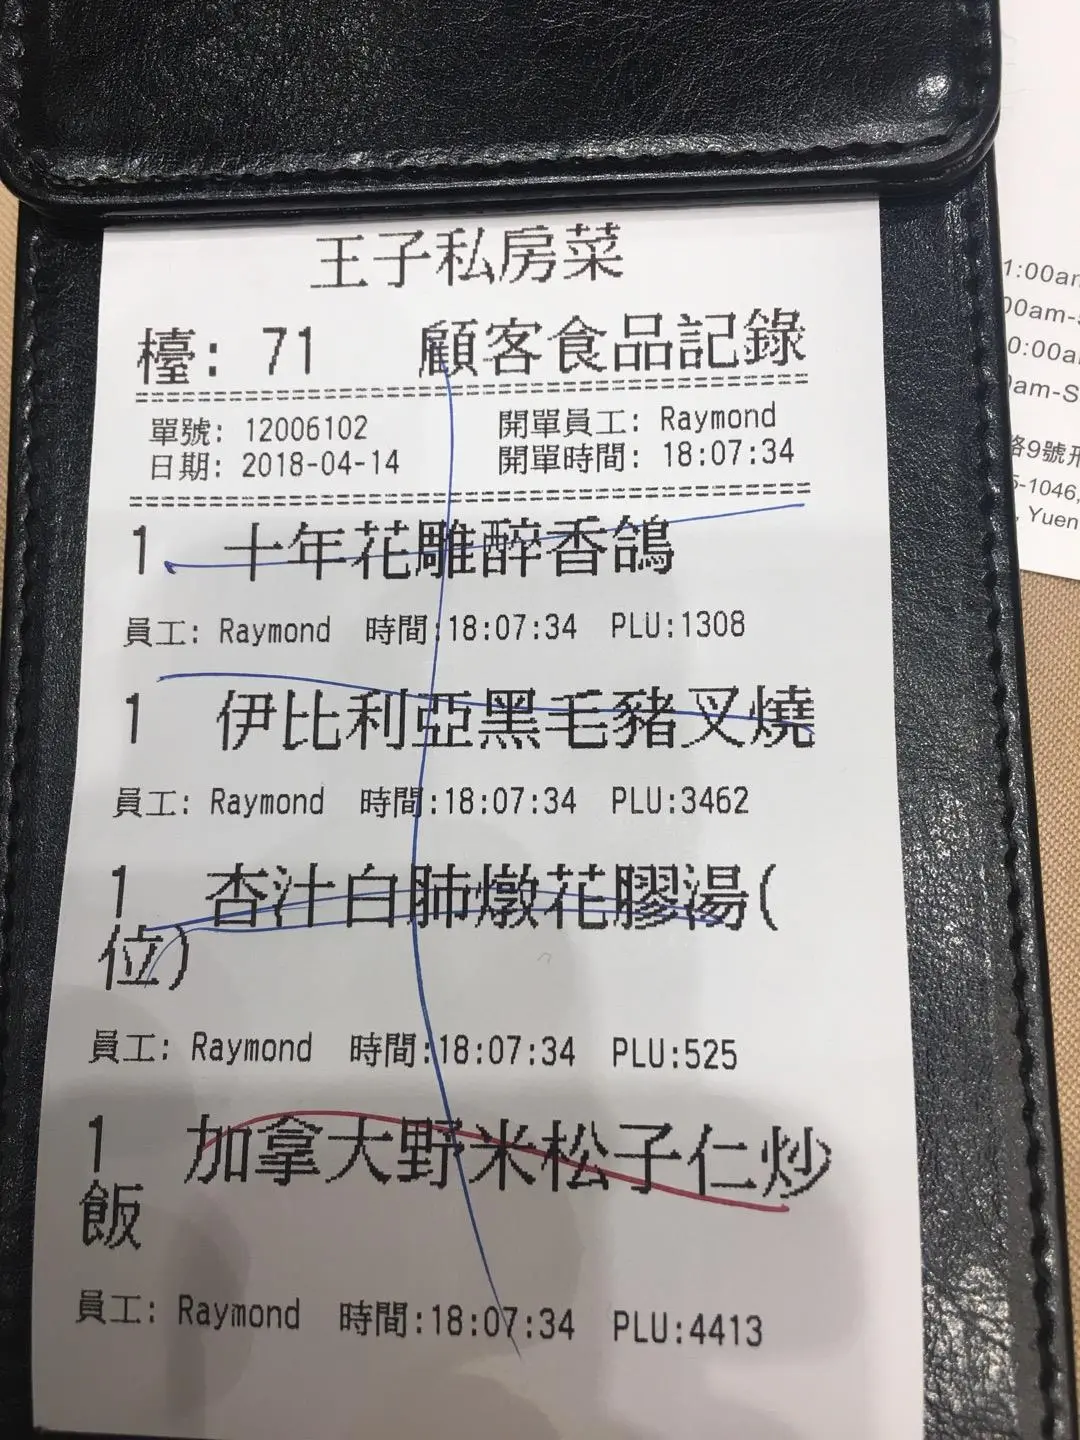 王子私房菜
檯: 71 顧客食品記錄
單號: 12006102 開單員工: Raymond
日期: 2018-04-14 開單時間: 18:07:34
1 十年花雕醉香鴿
員工: Raymond 時間:18:07:34 PLU:1308
1 伊比利亞黑毛豬叉燒
員工: Raymond 時間:18:07:34 PLU:3462
1 杏汁白肺燉花膠湯(
位)
員工: Raymond 時間:18:07:34 PLU:525
1 加拿大野米松子仁炒
飯
員工: Raymond 時間:18:07:34 PLU:4413
1:00am
00am-
0:00a
am-S
路9號
-1046,
, Yuen